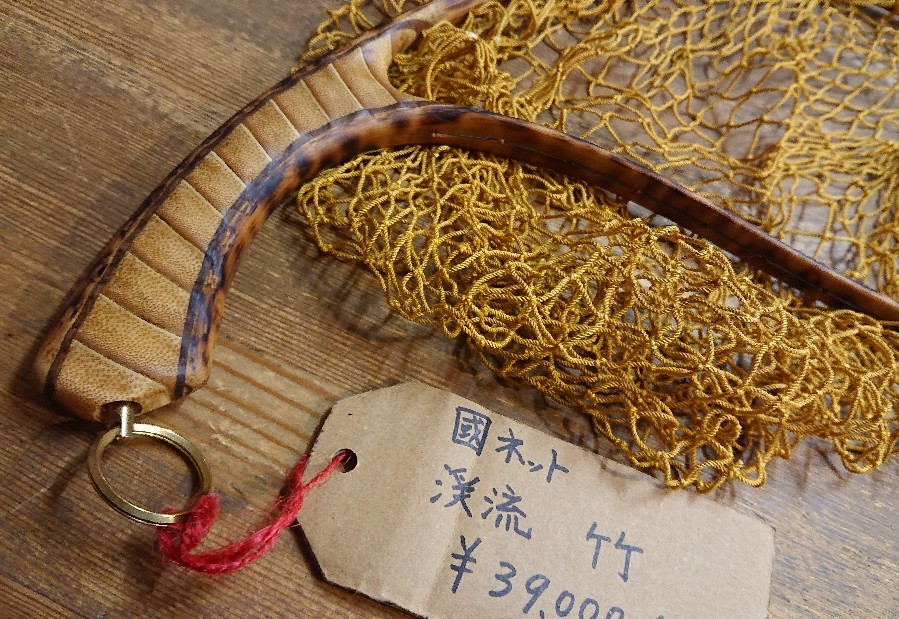 國ネット
渓流 竹
¥39,000